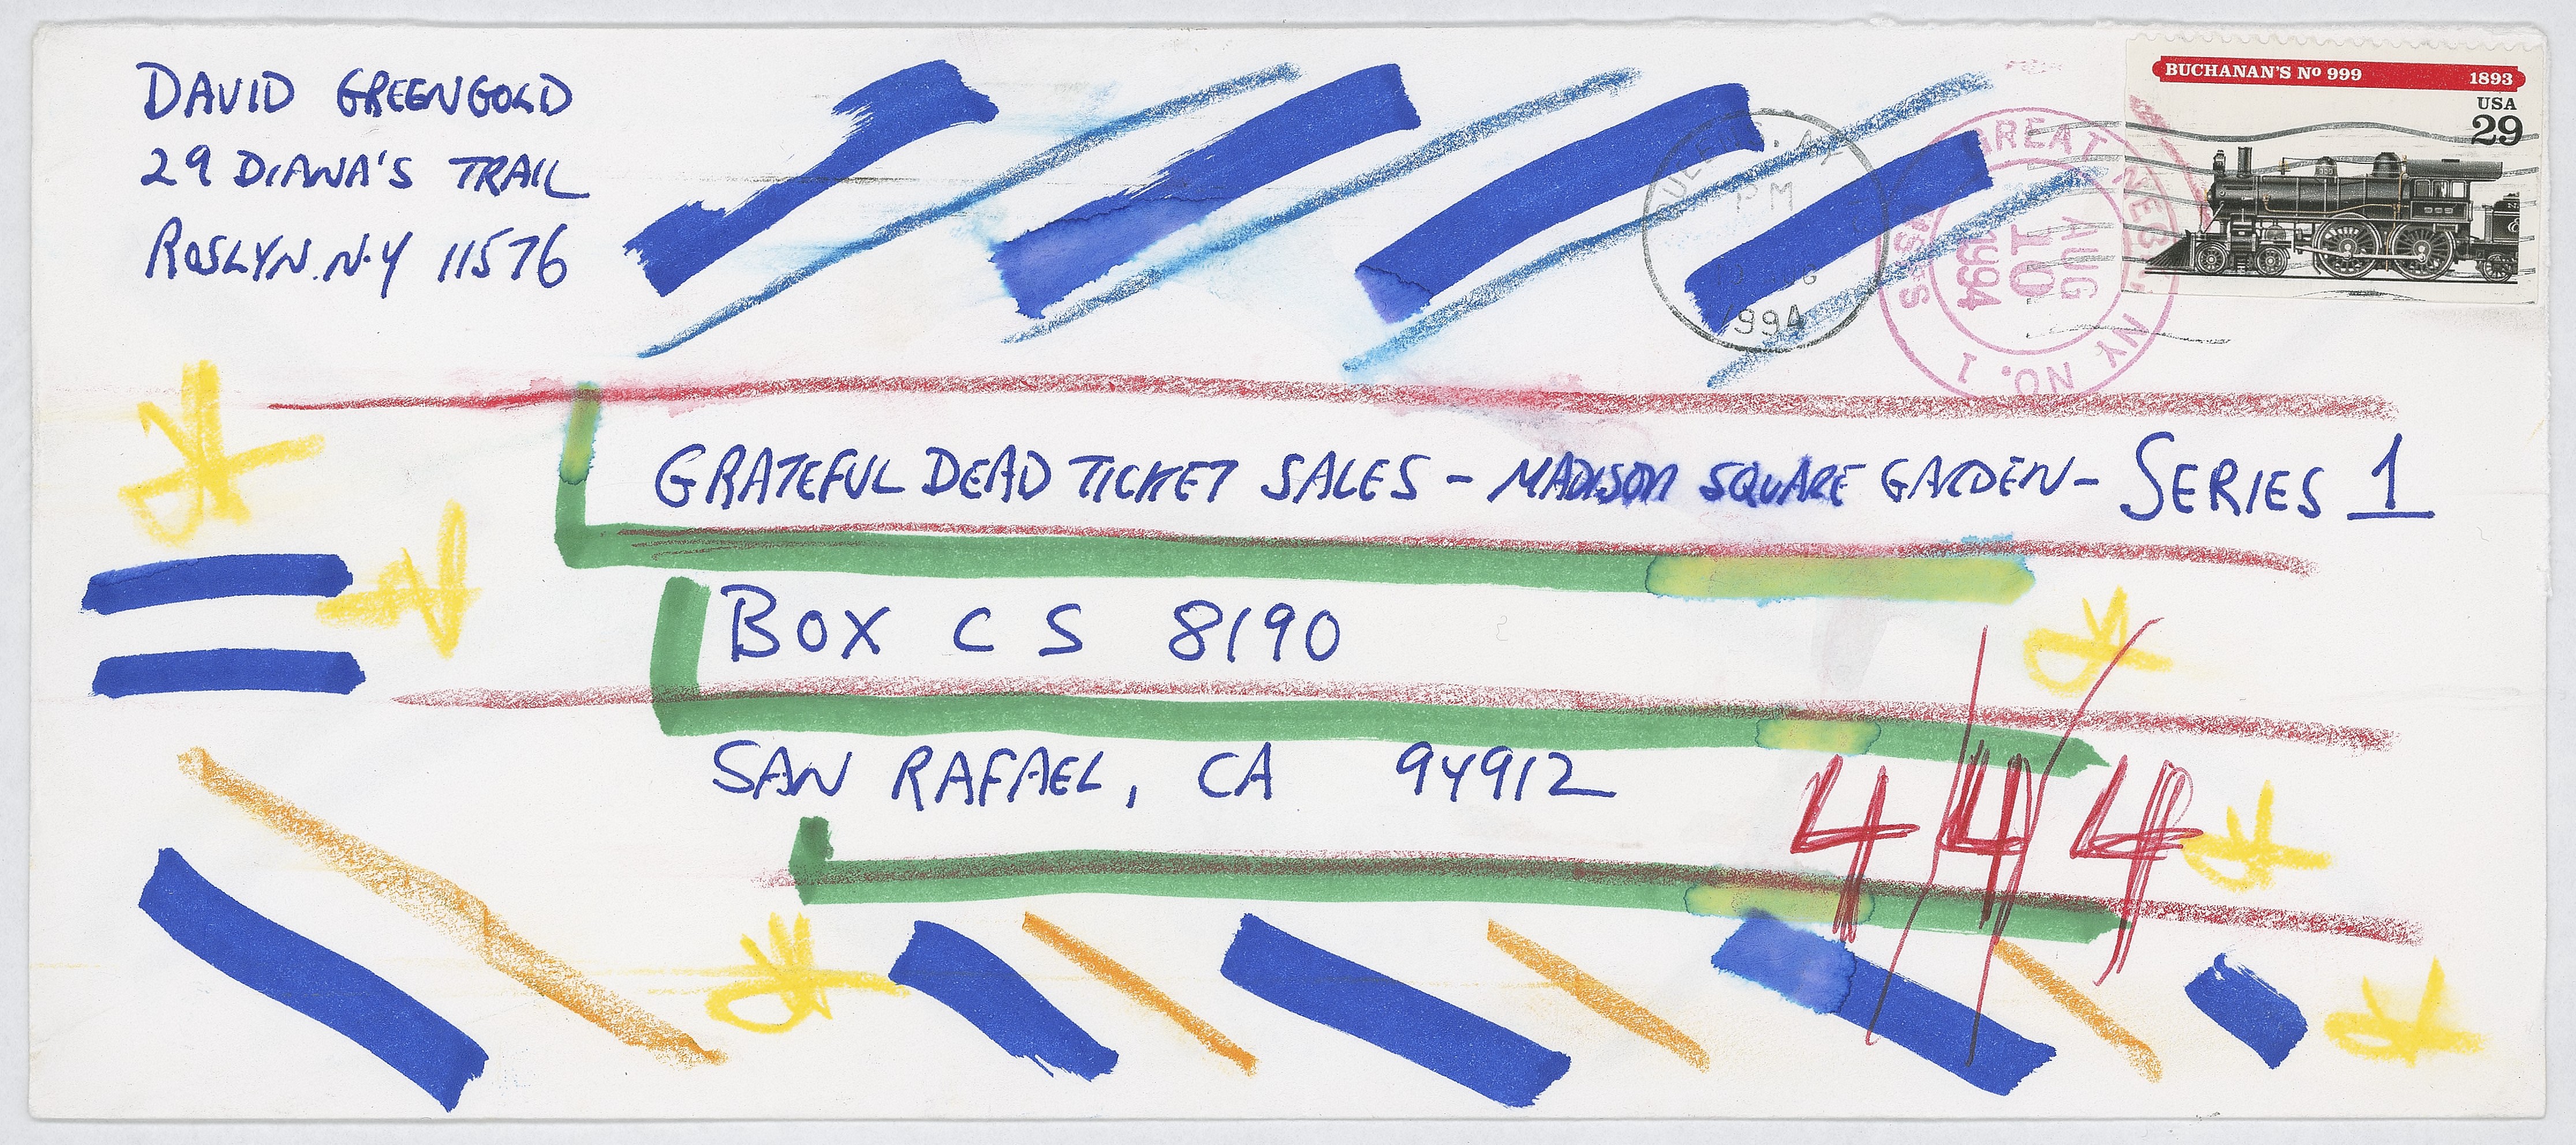 DAVID GREENGOLD
29 DIANA'S TRAIL
ROSLYN. N.Y 11576
BUCHANAN'S Nº 999 1893
USA
29
PM
1994
GREAT NECK, NY NO. 1
AUG
10
1994
GRATEFUL DEAD TICKET SALES - MADISON SQUARE GARDEN - SERIES 1
BOX CS 8190
SAN RAFAEL, CA 94912
4/4/4